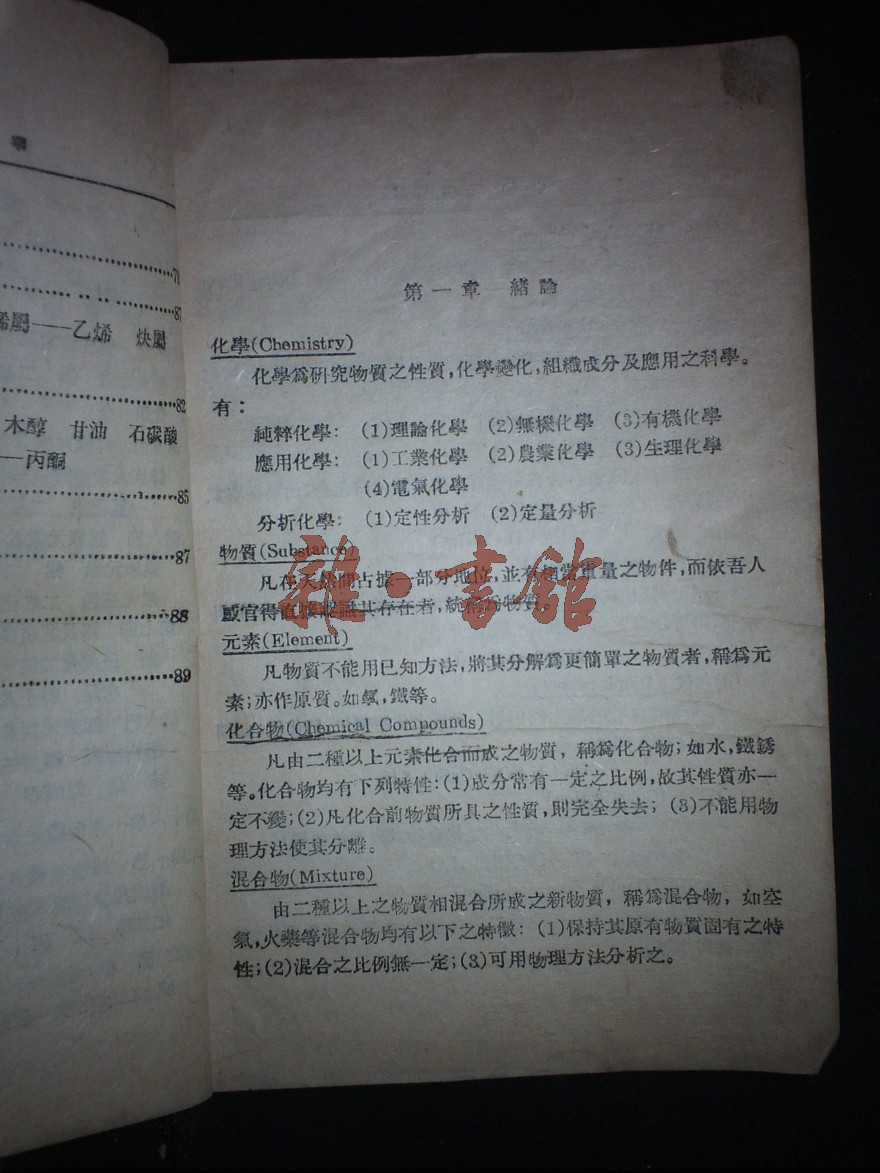 78
87
烯屬——乙烯 炔屬
82
木醇 甘油 石碳酸
—丙酮
85
87
88
89
第一章 緒論
化學(Chemistry)
化學爲研究物質之性質,化學變化,組織成分及應用之科學。
有:
純粹化學: (1)理論化學 (2)無機化學 (3)有機化學
應用化學: (1)工業化學 (2)農業化學 (3)生理化學
(4)電氣化學
分析化學: (1)定性分析 (2)定量分析
物質(Substance)
凡在天然間占據一部分地位,並有相當重量之物件,而依吾人
感官得直接認識其存在者,統稱爲物質。
元素(Element)
凡物質不能用已知方法,將其分解爲更簡單之物質者,稱爲元
素;亦作原質。如氧,鐵等。
化合物(Chemical Compounds)
凡由二種以上元素化合而成之物質, 稱爲化合物;如水,鐵銹
等。化合物均有下列特性:(1)成分常有一定之比例,故其性質亦一
定不變;(2)凡化合前物質所具之性質,則完全失去; (3)不能用物
理方法使其分離。
混合物(Mixture)
由二種以上之物質相混合所成之新物質, 稱爲混合物, 如空
氣,火藥等混合物均有以下之特徵: (1)保持其原有物質固有之特
性;(2)混合之比例無一定;(3)可用物理方法分析之。
雜·書館